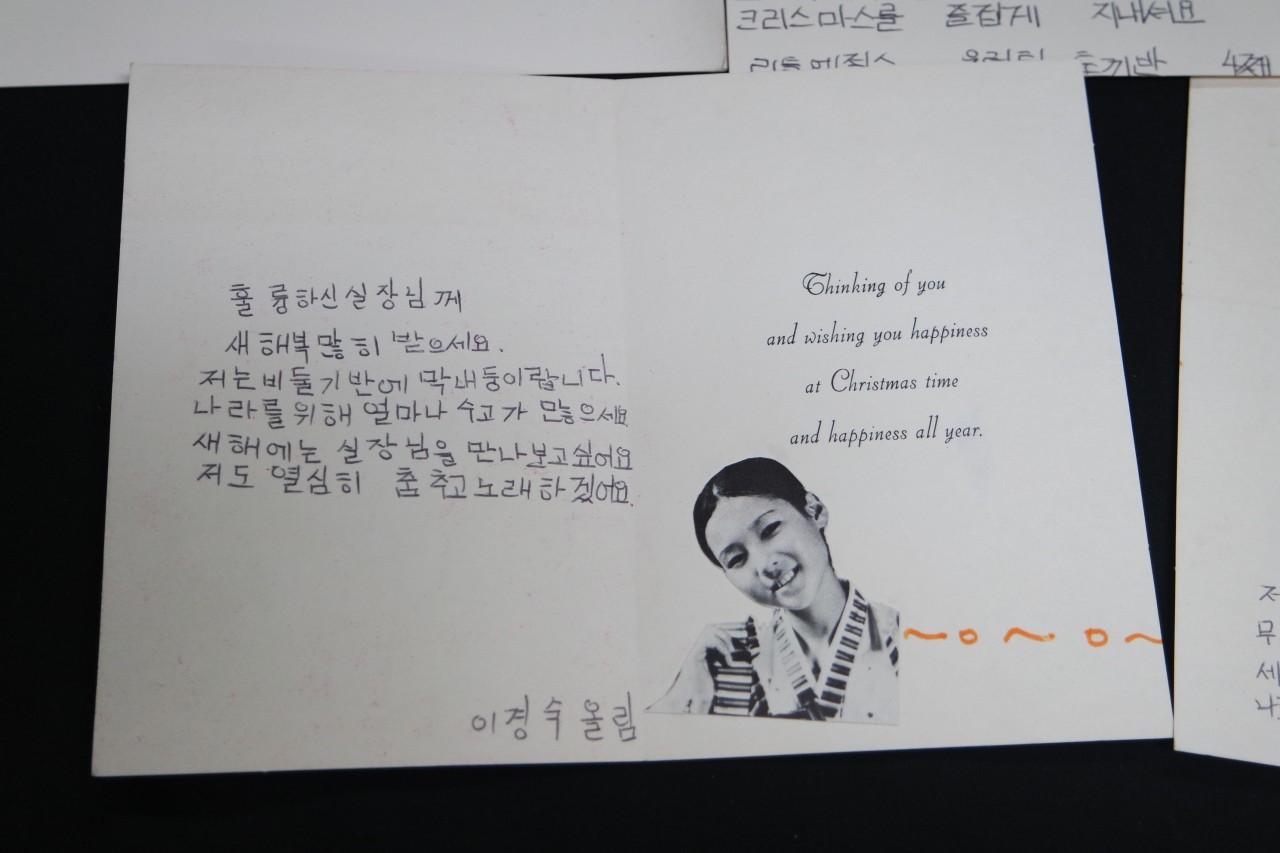 크리스마스를 즐겁게 지내세요
훌륭하신 실장님께
새해복 많히 받으세요.
저는 비둘기반에 막내둥이랍니다.
나라를 위해 얼마나 수고가 많으세요
새해에는 실장님을 만나보고싶어요
저도 열심히 춤추고 노래하겠어요.
이경숙 올림
Thinking of you
and wishing you happiness
at Christmas time
and happiness all year.